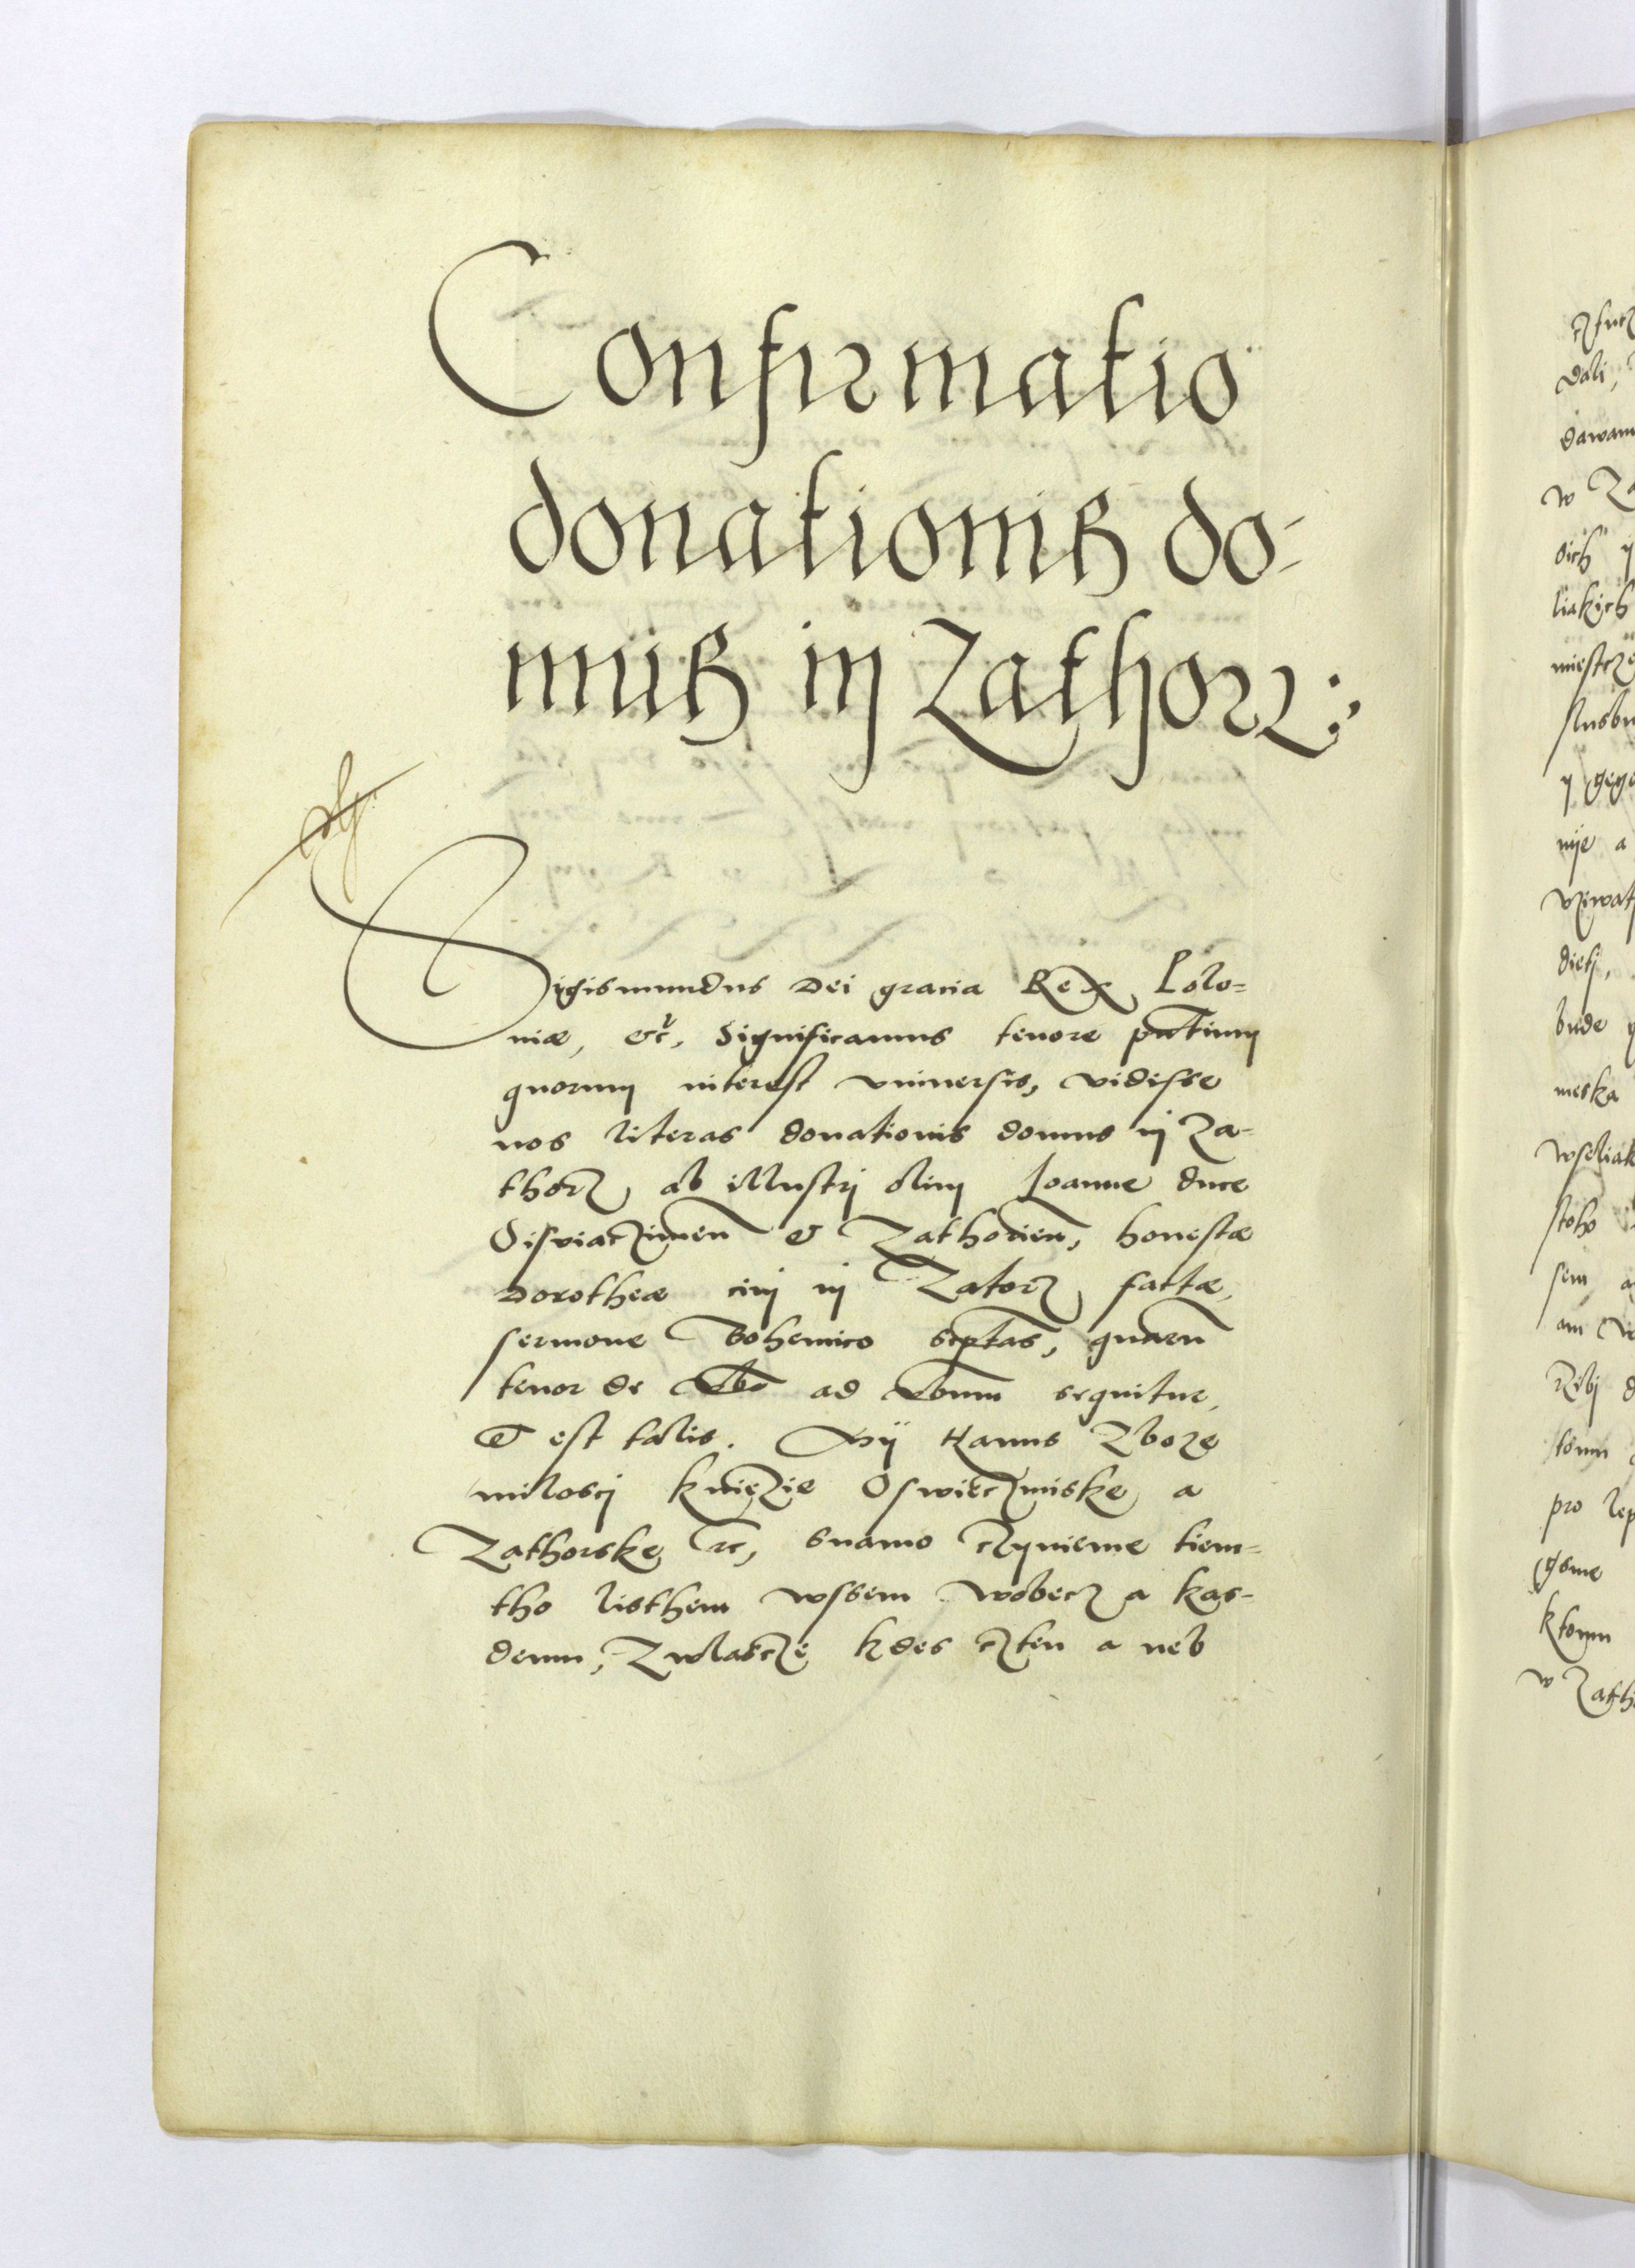 Confirmatio
donationis do-
muus in Zathorz:
Sigismundus Dei gratia Rex Polo=
niæ, &c, Significamus tenore pñtium
quorum interest vniuersis, vidisse
nos literas donationis domus in Za-
thorz ab illustri olim Ioanne duce
Osviaczimen̄ & Zathorien̄, honestæ
Dorotheæ ciui in Zatorz factæ,
sermone Bohemico scptas, quaru̅
tenor de v̅bo ad v̅bum sequitur,
& est talis. My Hanus Zboze
milosci knięzie Oswieczimske a
Zathorske ꝛc, snamo czynieme tiem=
tho listhem wssem wobecz a kas-
demu, Zwlascze kdes czten a neb
czucz
dali,
dawam
w Za
sich y
liakich
miestcze
slusbu
y gege
nije a
vziwat
dieti,
bude
meska
wseliak
stoho
sem a
am
tomu
pro lep
gsme
ktomu
w Zath